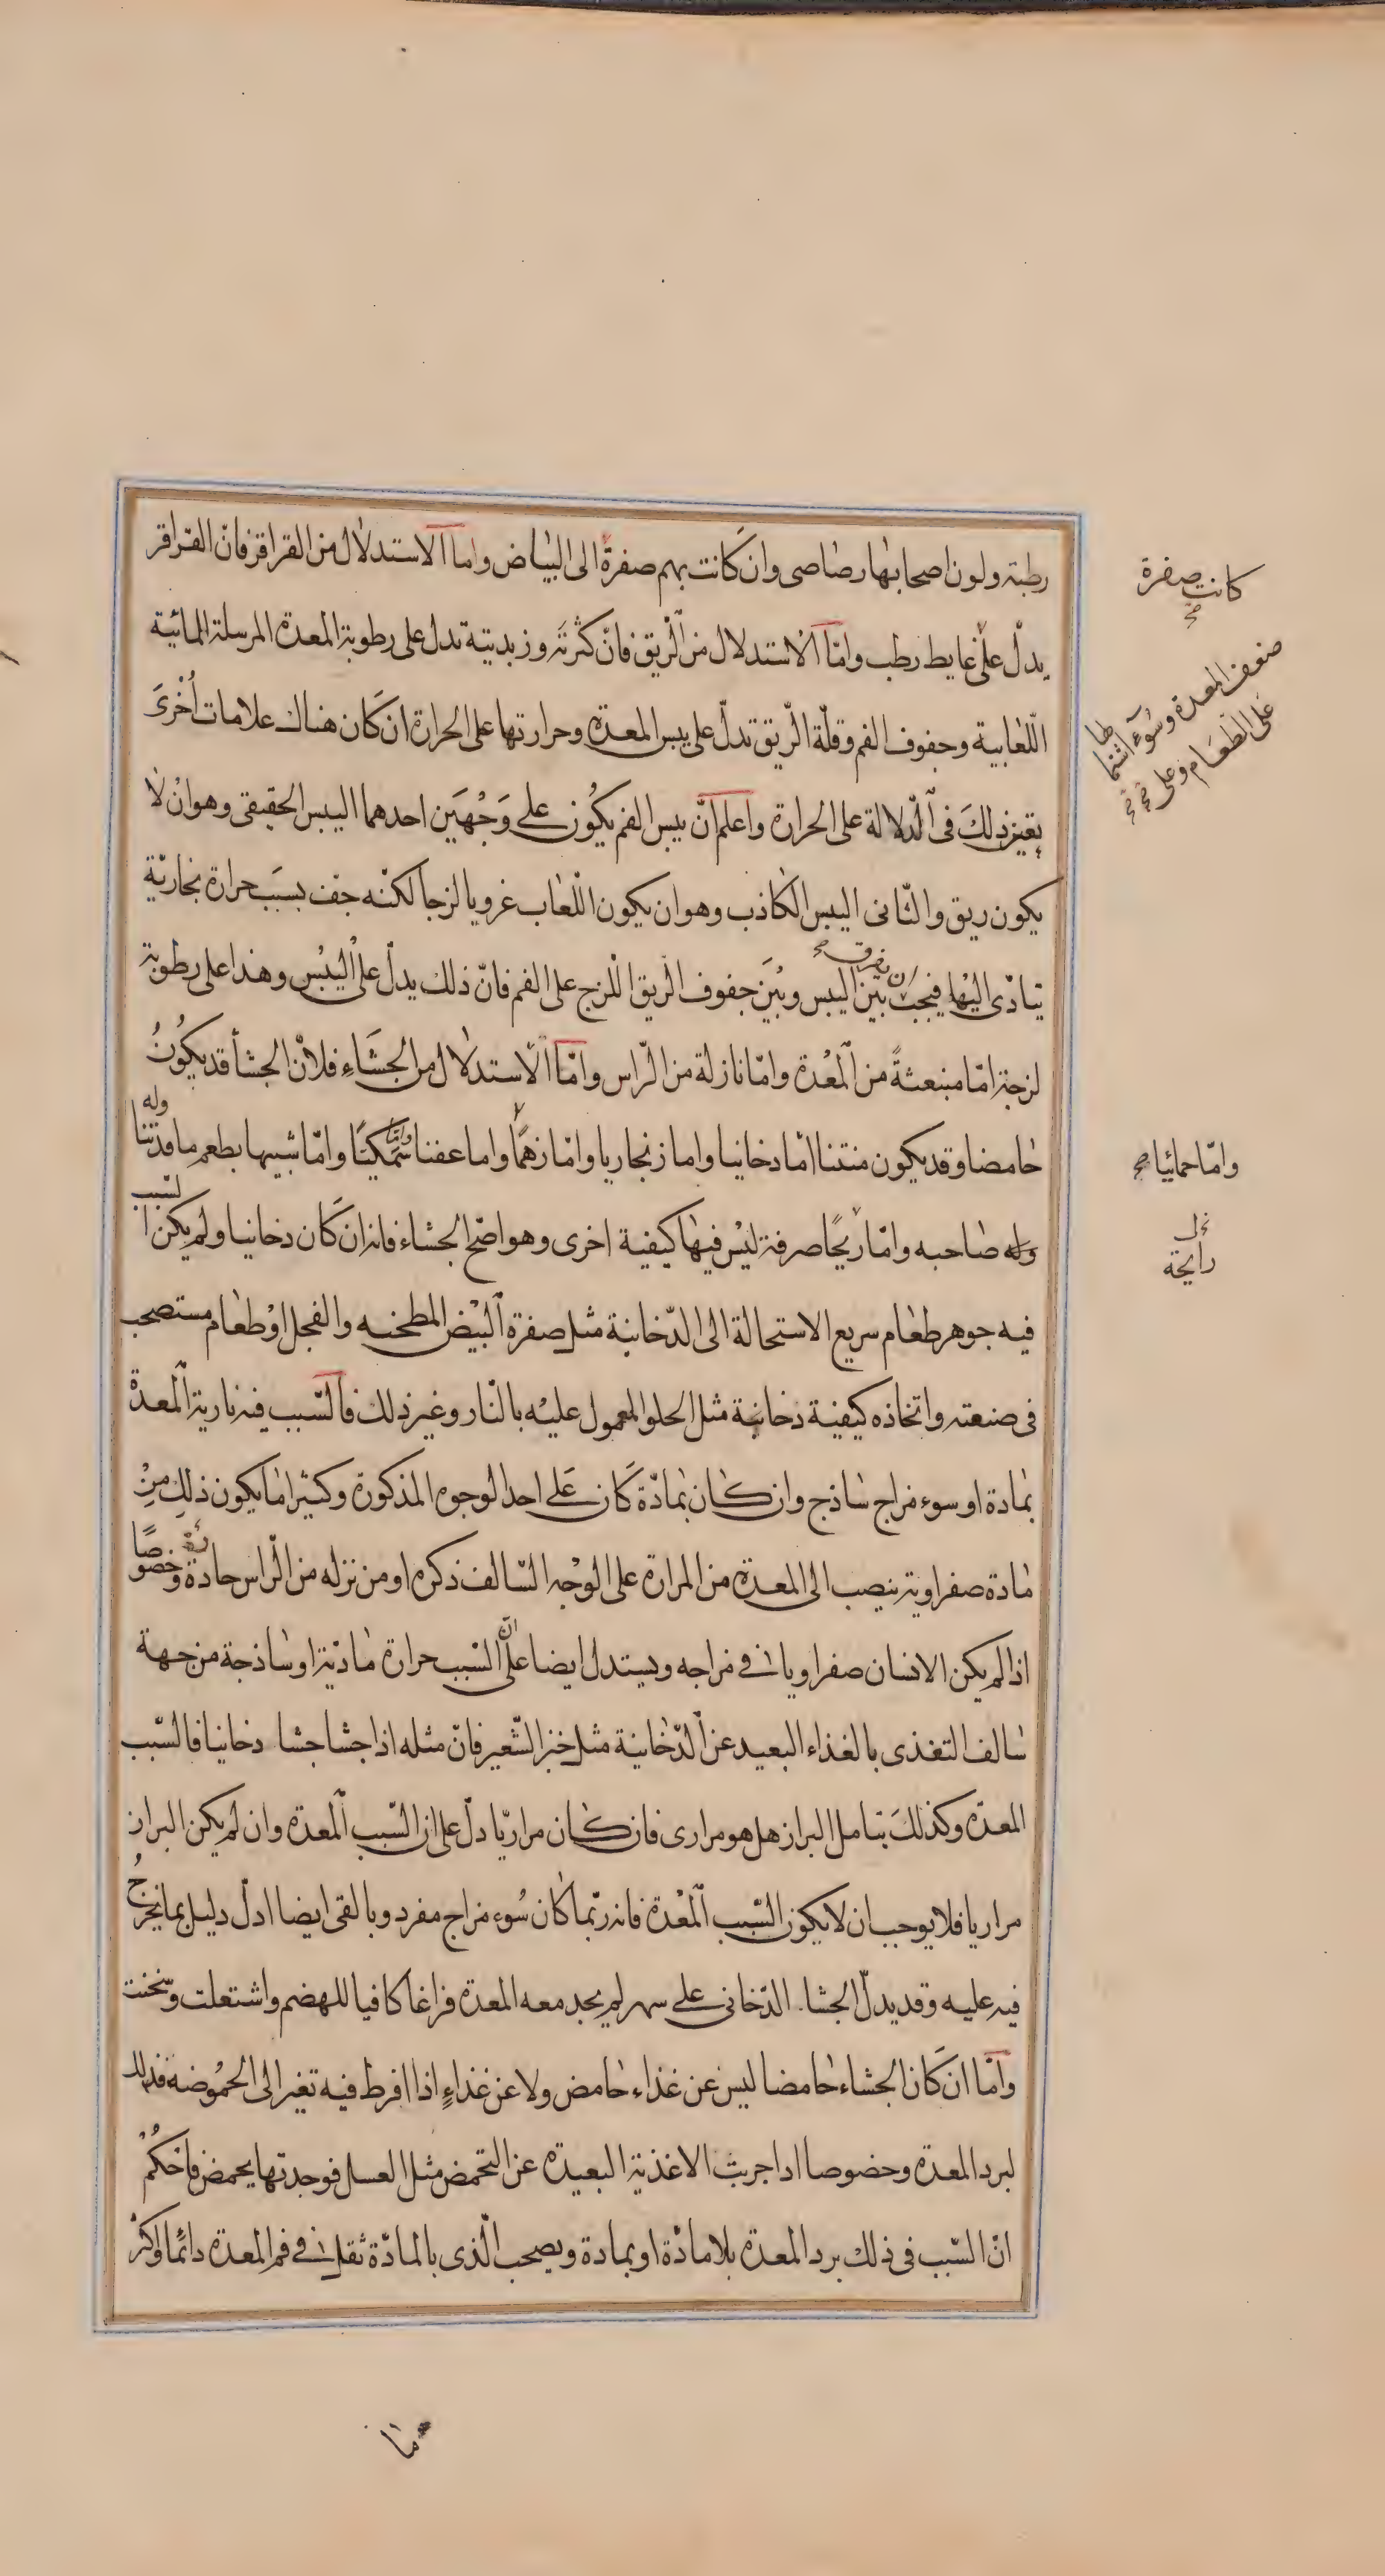 رطبة ولون اصحابها رصاصى وان كانت بهم صفرة الى البياض واما الاستدلال من القراقر فان القراقر
يدل على غايط رطب واما الاستدلال من الريق فان كثرته وزبديتة تدل على رطوبة المعدة المرسلة المائية
اللعابية وجفوف الفم وقلة الريق تدل على يبس المعدة وحرارتها على الحرارة ان كان هناك علامات اخرى
يعين ذلك فى الدلالة على الحرارة واعلم ان يبس الفم يكون على وجهين احدهما اليبس الحقيقى وهو ان لا
يكون ريق والثانى اليبس الكاذب وهو ان يكون اللعاب غرويا لزجا لكنه جف بسبب حرارة بخارية
تتادى اليها فيجب ان يفرق بين اليبس وبين جفوف الريق اللزج على الفم فان ذلك يدل على اليبس وهذا على رطوبة
لزجة اما منبعثة من المعدة واما نازلة من الراس واما الاستدلال من الجشاء فلان الجشأ قد يكون
حامضا وقد يكون منتنا اما دخانيا واما زنجاريا واما زهما واما عفنا واما سمكيا واما شبيها بطعم ما قد تناوله
صاحبه واما ريحا صرفة ليس فيها كيفية اخرى وهو اصح الجشاء فانه ان كان دخانيا ولم يكن السبب
فيه جوهر طعام سريع الاستحالة الى الدخانية مثل صفرة البيض المطجنه والفجل او طعام مستصحب
فى صنعته واتخاذه كيفية دخانية مثل الحلو المعمول عليه بالنار وغير ذلك فالسبب فيه نارية المعدة
بمادة او سوء مزاج ساذج وان كان بمادة كان على احد الوجوه المذكورة وكثيرا ما يكون ذلك من
مادة صفراوية ينصب الى المعدة من المرارة على الوجه السالف ذكره او من نزله من الراس حادة وخصوصا
اذا لم يكن الانسان صفراويا فى مزاجه ويستدل ايضا على ان السبب حرارة مادية او ساذجة من جهة
سالف التغذى بالغذاء البعيد عن الدخانية مثل خبز الشعير فان مثله اذا جشا جشا دخانيا فالسبب
المعدة وكذلك يتامل البراز هل هو مرارى فان كان مراريا دل على ان السبب المعدة وان لم يكن البراز
مراريا فلا يوجب ان لا يكون السبب المعدة فانه ربما كان سوء مزاج مفرد وبالقى ايضا ادل دليل بما يخرج
فيه عليه وقد يدل الجشا الدخانى على سهر لم يجد معه المعدة فراغا كافيا للهضم واشتعلت وسخنت
واما ان كان الجشاء حامضا ليس عن غذاء حامض ولا عن غذاء اذا افرط فيه تغير الى الحموضه فذلك
لبرد المعدة وخصوصا اذا جربت الاغذية البعيدة عن التحمض مثل العسل فوجدتها يحمض فاحكم
ان السبب فى ذلك برد المعدة بلا مادة او بمادة ويصحب الذى بالمادة ثقل فى فم المعدة دائما واكثر
كانت صفرة
ضعف المعدة وسوء اشتما
لها
على الطعام وعلى
واما حمائيا صح
رايحة
ما